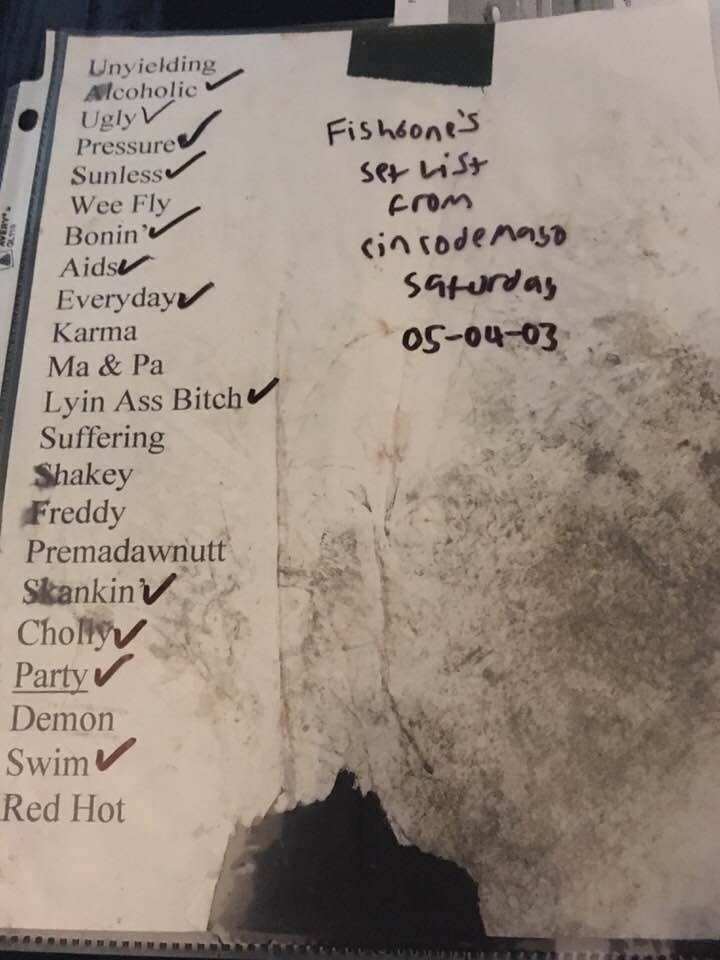 Unyielding
Alcoholic ✓
Ugly ✓
Pressure ✓
Sunless ✓
Wee Fly
Bonin' ✓
Aids ✓
Everyday ✓
Karma
Ma & Pa
Lyin Ass Bitch ✓
Suffering
Shakey
Freddy
Premadawnutt
Skankin' ✓
Cholly ✓
Party ✓
Demon
Swim ✓
Red Hot
Fishbone's
set list
from
cincodemayo
saturday
05-04-03
AVERY